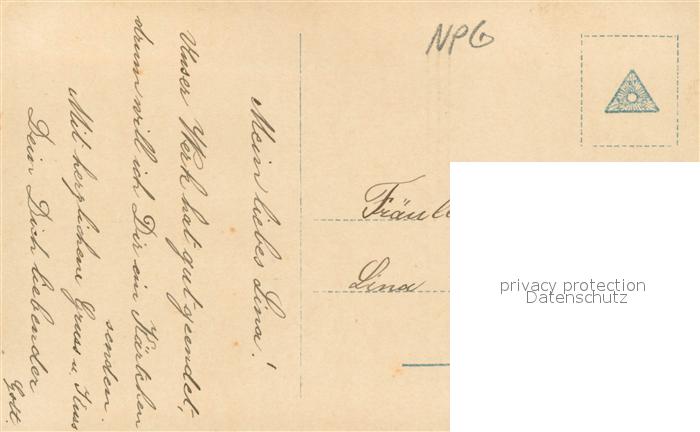 NPG
Mein liebes Lina!
Unser Werk hat gut geendet,
drum will ich Dir ein Kärtchen
senden.
Mit herzlichem Gruss u. Kuss
Dein Dich liebender
Gott.
Fräul
Lina
privacy protection
Datenschutz